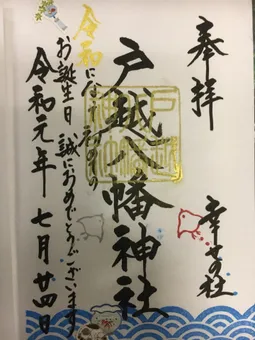 奉拝
幸せの社
戸越八幡神社
戸越八幡神社
令和になり初めての
お誕生日 誠におめでとうございます
令和元年 七月廿四日